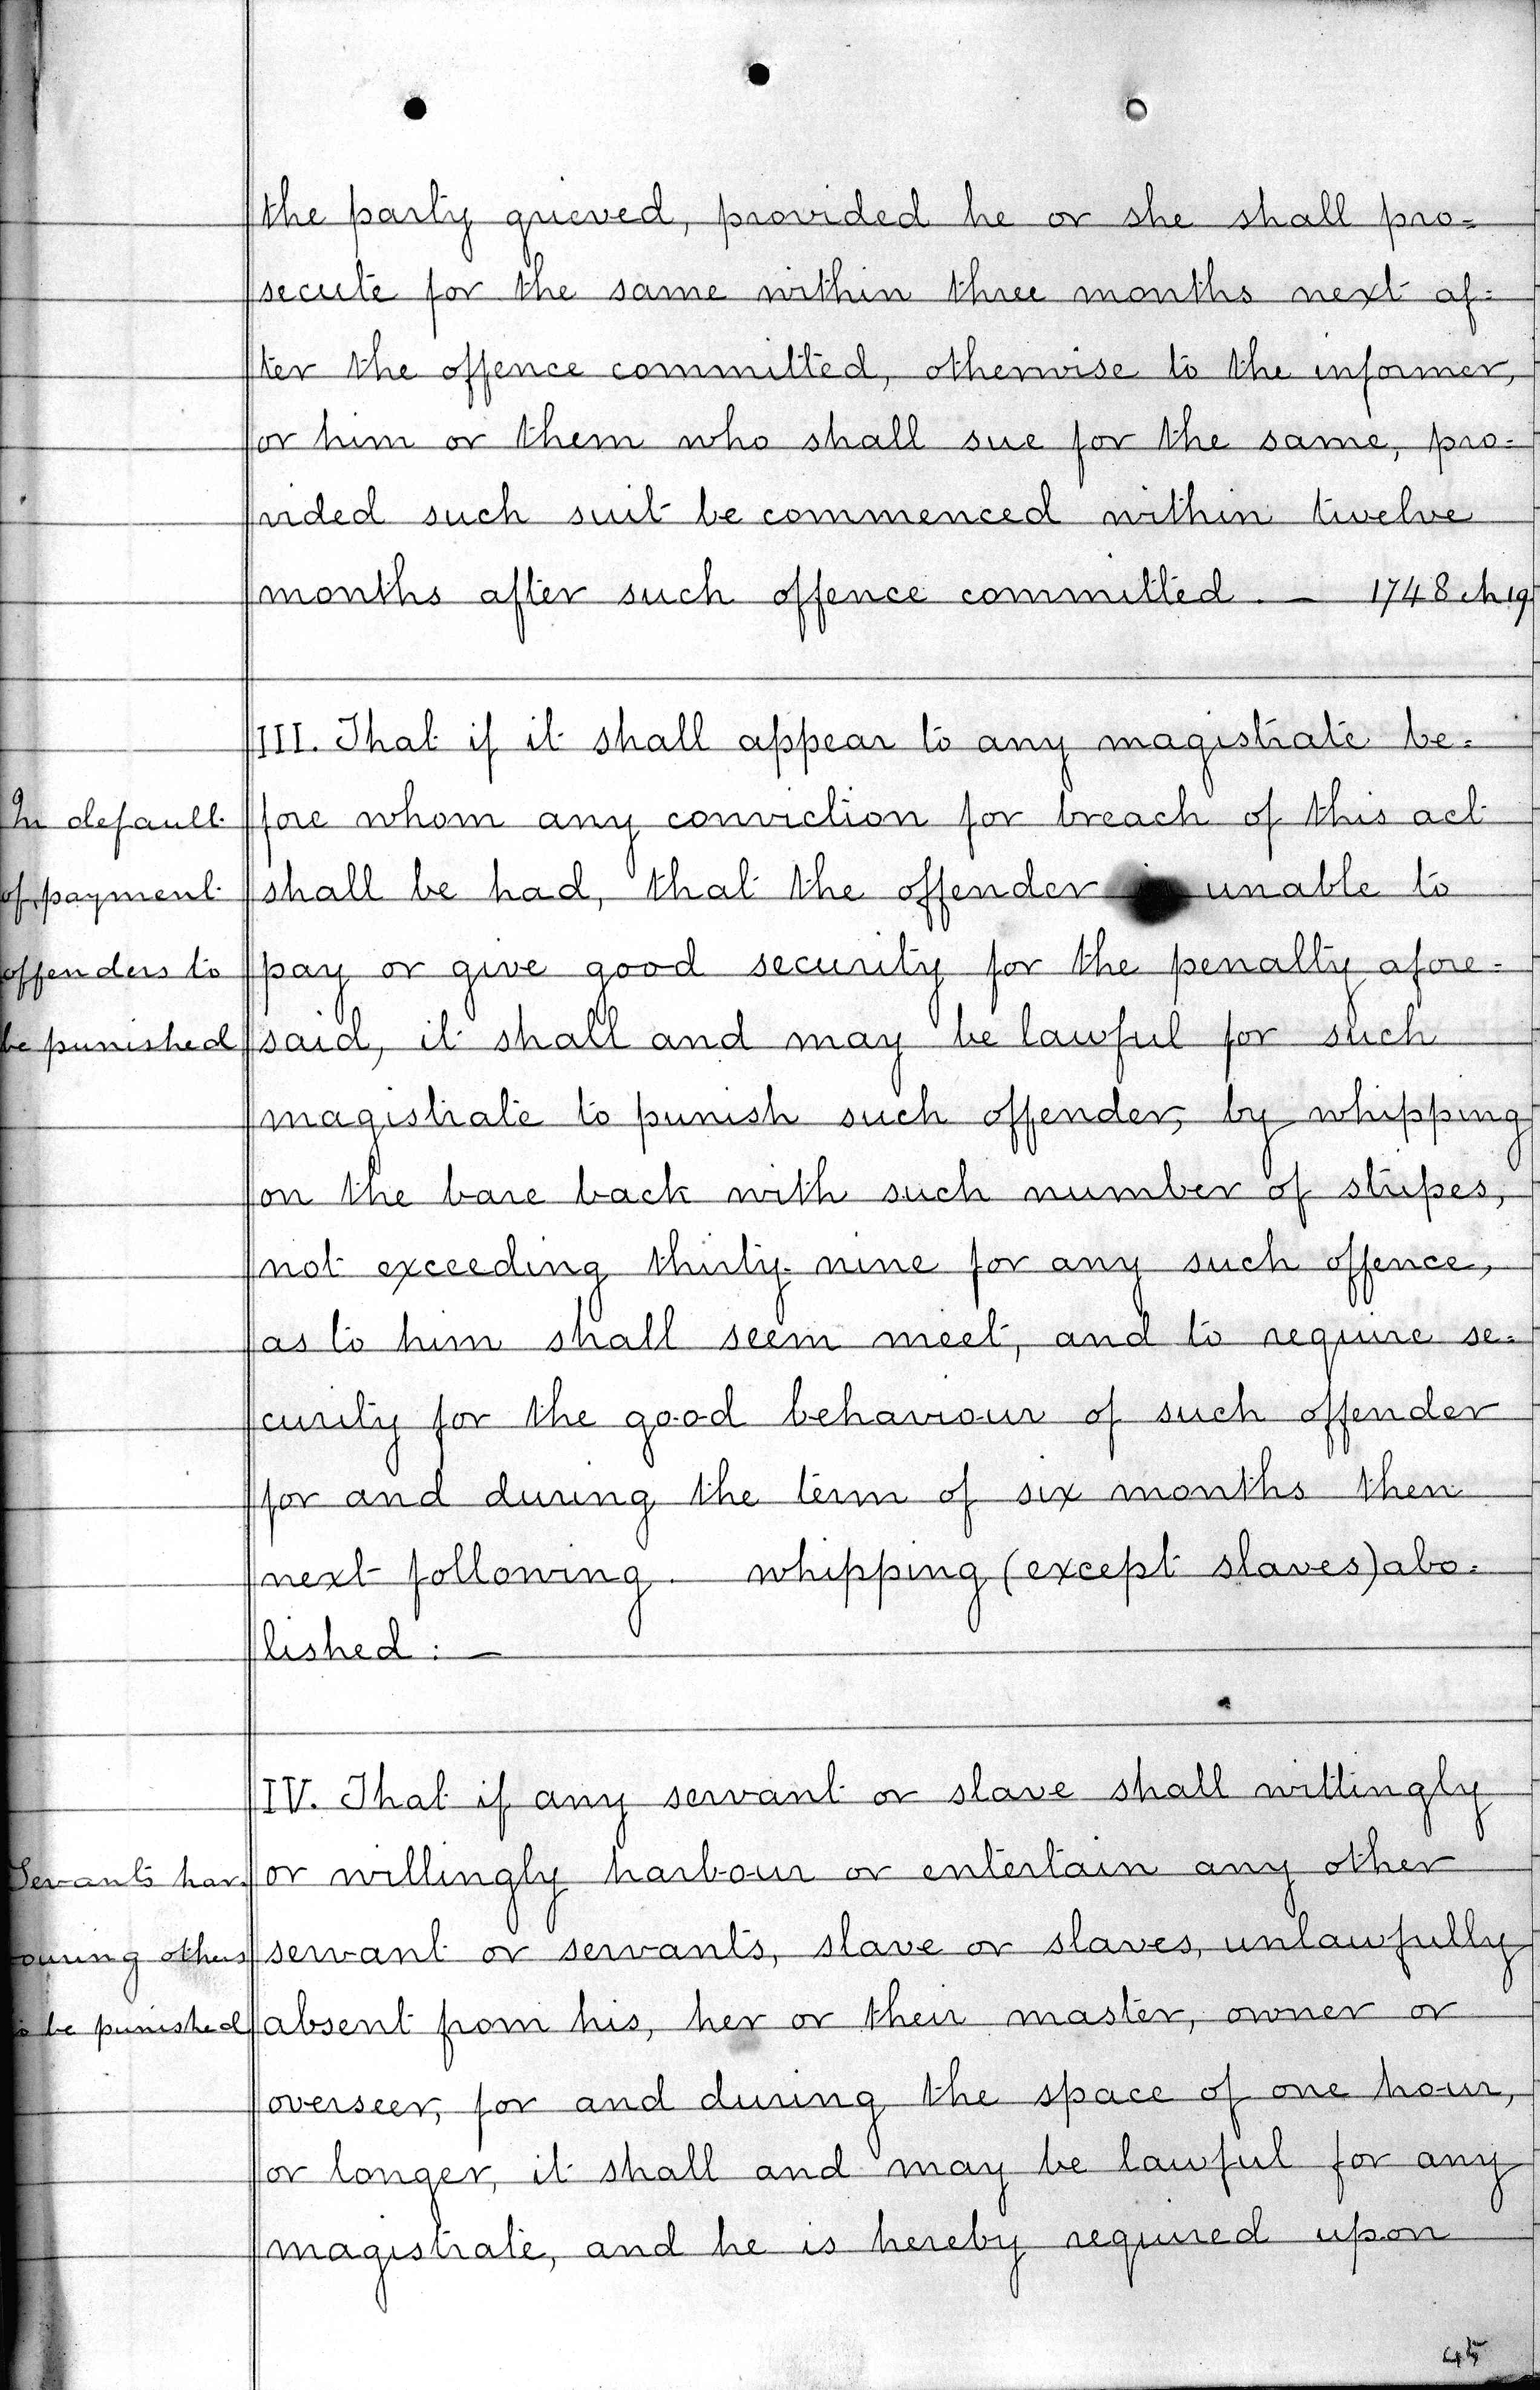 the party grieved, provided he or she shall pro=
secute for the same within three months next af=
ter the offence committed, otherwise to the informer,
or him or them who shall sue for the same, pro=
vided such suit be commenced within twelve
months after such offence committed. — 1748 ch 19
III. That if it shall appear to any magistrate be=
In default
fore whom any conviction for breach of this act
of payment
shall be had, that the offender unable to
offenders to
pay or give good security for the penalty afore=
be punished
said, it shall and may be lawful for such
magistrate to punish such offender, by whipping
on the bare back with such number of stripes,
not exceeding thirty-nine for any such offence,
as to him shall seem meet, and to require se=
curity for the good behaviour of such offender
for and during the term of six months then
next following. whipping (except slaves) abo=
lished: —
IV. That if any servant or slave shall wittingly
Servants har=
or willingly harbour or entertain any other
ouring others
servant or servants, slave or slaves, unlawfully
be punished
absent from his, her or their master, owner or
overseer, for and during the space of one hour,
or longer, it shall and may be lawful for any
magistrate, and he is hereby required upon
45